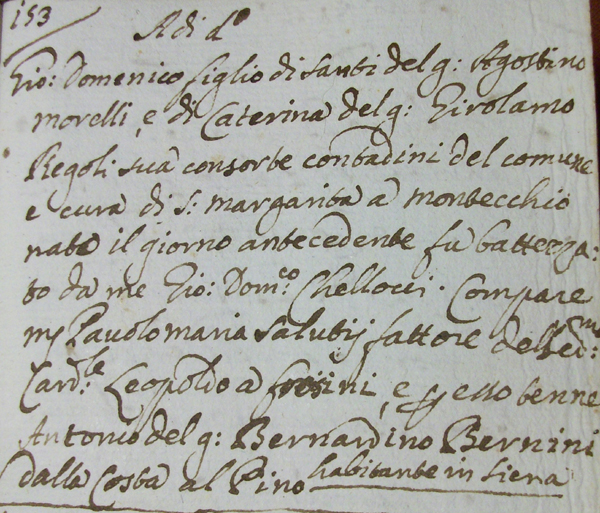 153
Adi d.º
Gio: Domenico figlio di Santi del q: Agostino
morelli, e di Caterina del q: Girolamo
Regoli sua consorte contadini del comune
e cura di S: margarita a montecchio
nato il giorno antecedente fu battezza:
to da me Gio: Dom.co Chellocci. Compare
Pavolo maria Salutij fattore dell'em:mo
Card:le Leopoldo a frosini, e p esso tenne
Antonio del q: Bernardino Bernini
dalla Costa al Pino habitante in Siena